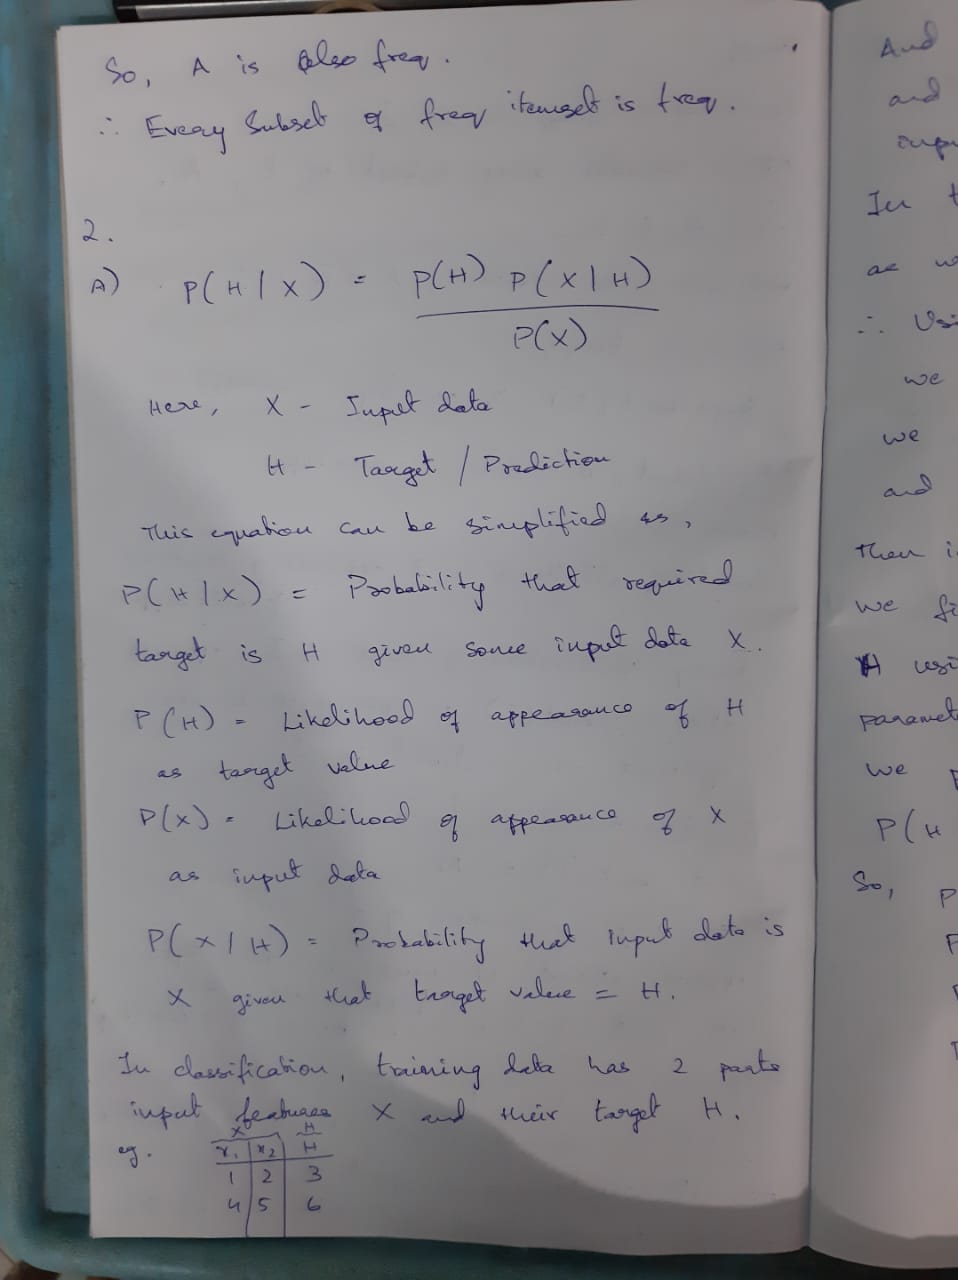 So, A is also freq.
∴ Every Subset of freq itemset is freq.
2.
A) P(H|X) = P(H) P(X|H)
P(X)
Here, X - Input data
H - Target / Prediction
This equation can be simplified as,
P(H|X) = Probability that required
target is H given some input data X.
P(H) = Likelihood of appearance of H
as target value
P(X) = Likelihood of appearance of X
as input data
P(X|H) = Probability that input data is
X given that target value = H.
In classification, training data has 2 parts
input features X and their target H.
eg.
X H
x₁ x₂ H
1 2 3
4 5 6
And
and
In
as
∴
we
we
and
Then
we
H
we
P(H
So,